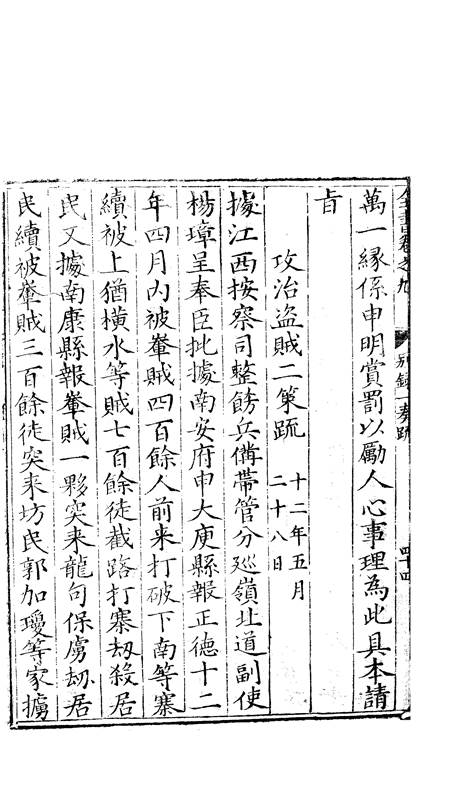 全書卷之九 別錄一奏疏 四十四
萬一緣係申明賞罰以勵人心事理為此具本請
旨
攻治盜賊二策疏 十二年五月二十八日
據江西按察司整飭兵備帶管分巡嶺北道副使
楊璋呈奉臣批據南安府申大庾縣報正德十二
年四月內被輋賊四百餘人前来打破下南等寨
續被上猶橫水等賊七百餘徒截路打寨刼殺居
民又據南康縣報輋賊一夥突来龍句保虜刼居
民續被輋賊三百餘徒突来坊民郭加瓊等家擄